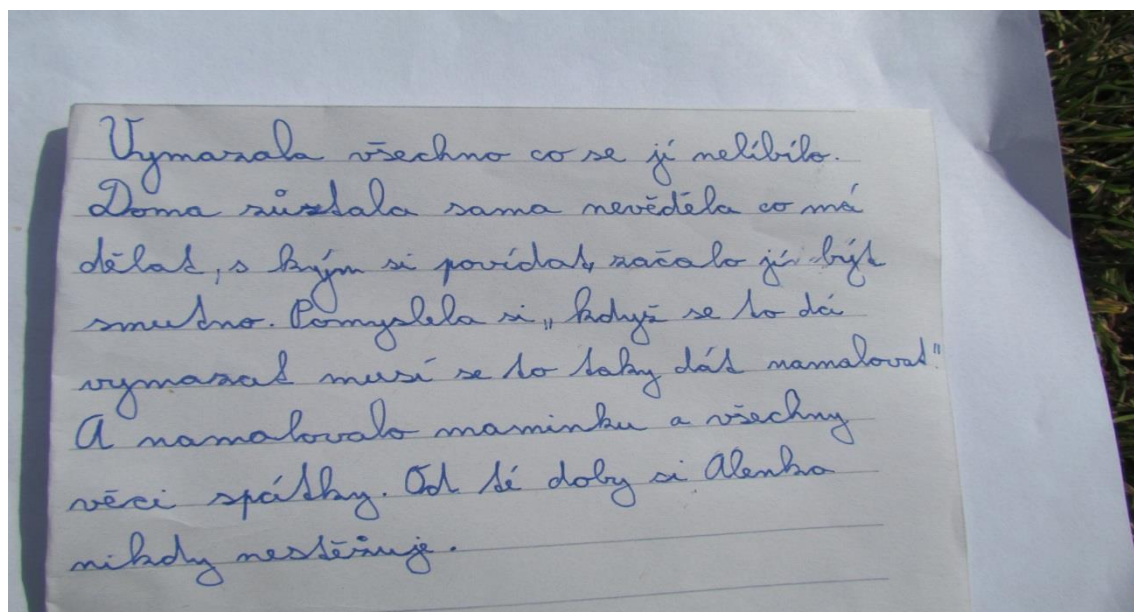 Vymazala všechno co se jí nelíbilo.
Doma zůstala sama nevěděla co má
dělat, s kým si povídat, začalo jí být
smutno. Pomyslela si „když se to dá
vymazat musí se to taky dát namalovat"
A namalovalo maminku a všechny
věci spátky. Od té doby si Alenka
nikdy nestěžuje.